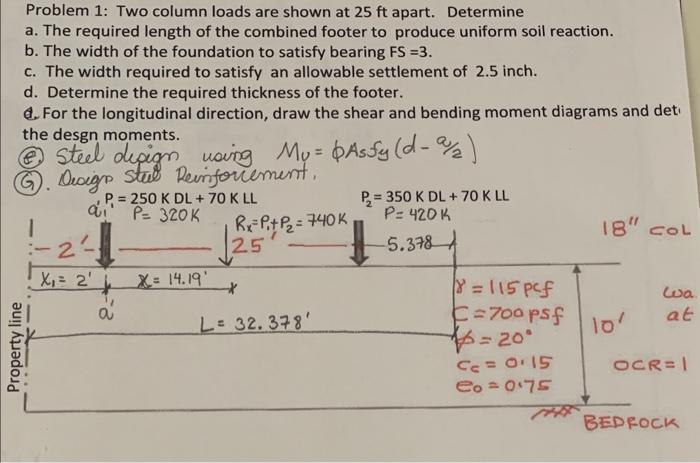 Problem 1: Two column loads are shown at 25 ft apart. Determine
a. The required length of the combined footer to produce uniform soil reaction.
b. The width of the foundation to satisfy bearing FS =3.
c. The width required to satisfy an allowable settlement of 2.5 inch.
d. Determine the required thickness of the footer.
d. For the longitudinal direction, draw the shear and bending moment diagrams and det
the desgn moments.
(e) Steel design using Mu = φAsfy (d - a/2)
G. Design Steel Reinforcement.
P₁ = 250 K DL + 70 K LL
P₂ = 350 K DL + 70 K LL
P = 320K
Rx = P₁ + P₂ = 740K
P = 420 K
18" COL
2'
25'
5.378
X₁ = 2'
X = 14.19'
a'
L = 32.378'
γ = 115 pcf
C = 700 psf
φ = 20°
Cc = 0.15
e₀ = 0.75
10'
wa
at
OCR = 1
Property line
BEDROCK